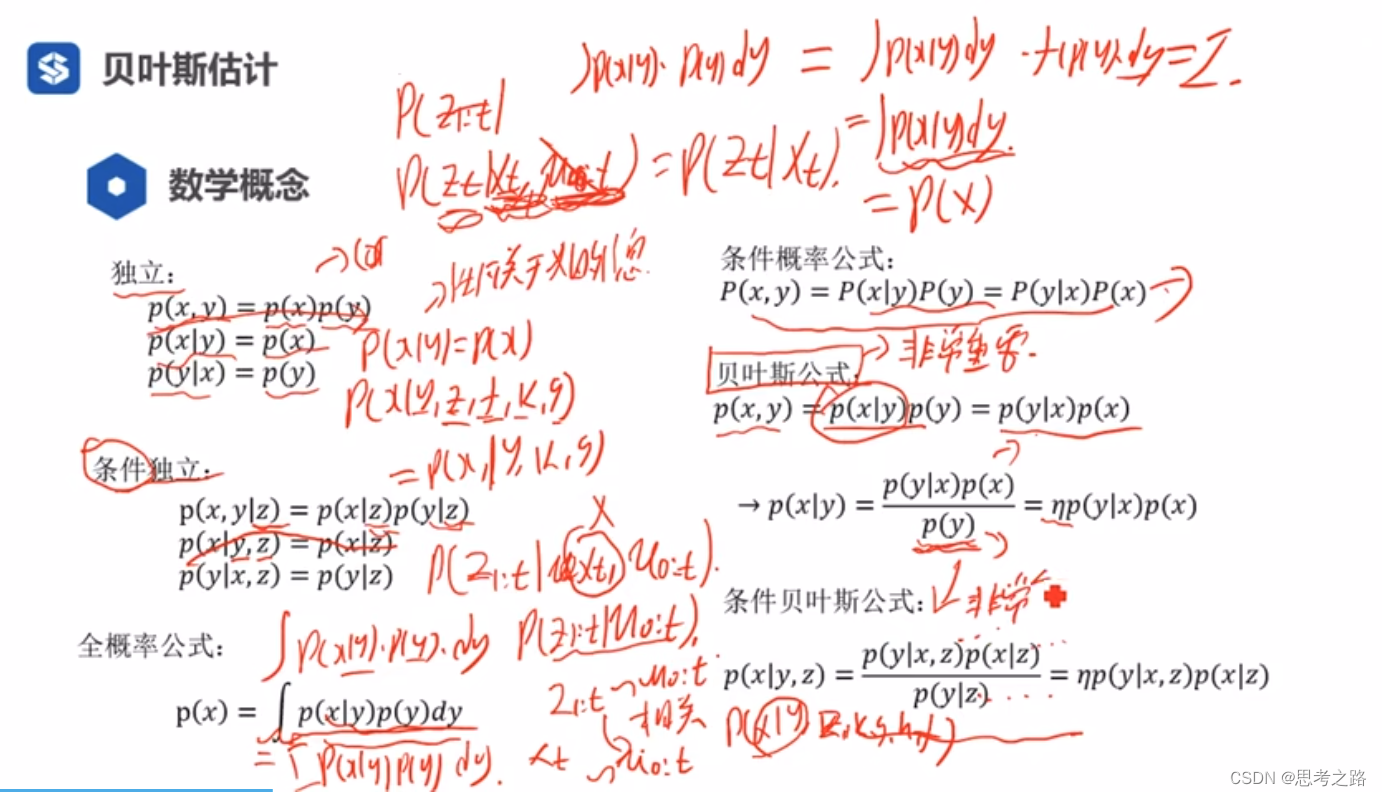 贝叶斯估计
∫p(x|y)·p(y)dy = ∫p(x|y)dy
P(Z1:t|
= ∫p(x|y)dy.
数学概念
P(Zt|Xt, u0:t) = P(Zt|Xt).
= P(X)
独立：
p(x,y) = p(x)p(y)
p(x|y) = p(x)
p(y|x) = p(y)
P(x|y)=P(x)
P(x|y,z,t,k,g)
= P(x,|y,k,g)
条件独立：
p(x,y|z) = p(x|z)p(y|z)
p(x|y,z) = p(x|z)
p(y|x,z) = p(y|z)
X
P(Z1:t|Xt, u0:t).
全概率公式：
∫P(x|y)·P(y)·dy
P(Z1:t|u0:t).
p(x) = ∫ p(x|y)p(y)dy
P(x|y)P(y) dy.
Z1:t u0:t
相关
Xt u0:t
条件概率公式：
P(x,y) = P(x|y)P(y) = P(y|x)P(x)
非常重要.
贝叶斯公式：
p(x,y) = p(x|y)p(y) = p(y|x)p(x)
→ p(x|y) = p(y|x)p(x) / p(y) = ηp(y|x)p(x)
条件贝叶斯公式：
非常
p(x|y,z) = p(y|x,z)p(x|z) / p(y|z) = ηp(y|x,z)p(x|z)
CSDN @思考之路